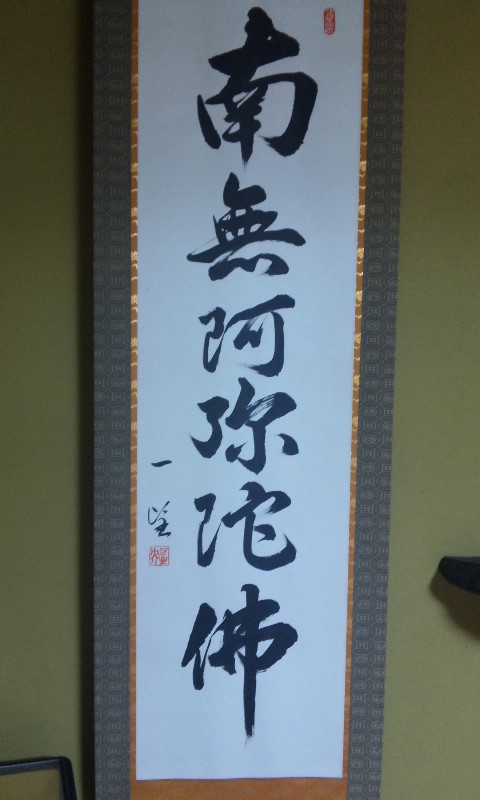 南無阿弥陀佛
一